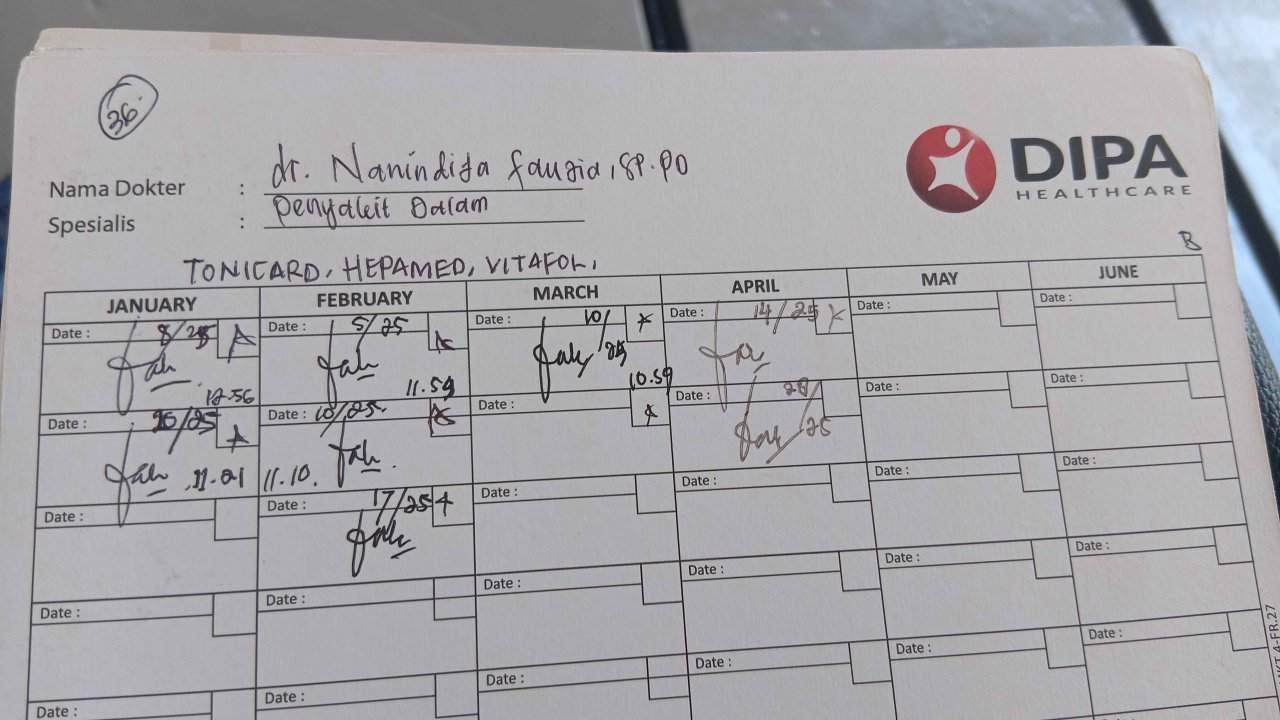 36
Nama Dokter : dr. Nanindita Fauzia, SP.PD
Spesialis : Penyakit Dalam
DIPA
HEALTHCARE
B
TONICARD, HEPAMED, VITAFOL,
JANUARY FEBRUARY MARCH APRIL MAY JUNE
Date : 8/25 Date : 5/25 Date : 10/25 Date : 14/25 Date : Date :
12.56 11.59 10.59
Date : /25 Date : 10/25 Date : Date : 28/25 Date : Date :
11.21 11.10.
Date : Date : 17/25 Date : Date : Date : Date :
Date : Date : Date : Date : Date : Date :
Date : Date : Date : Date : Date : Date :